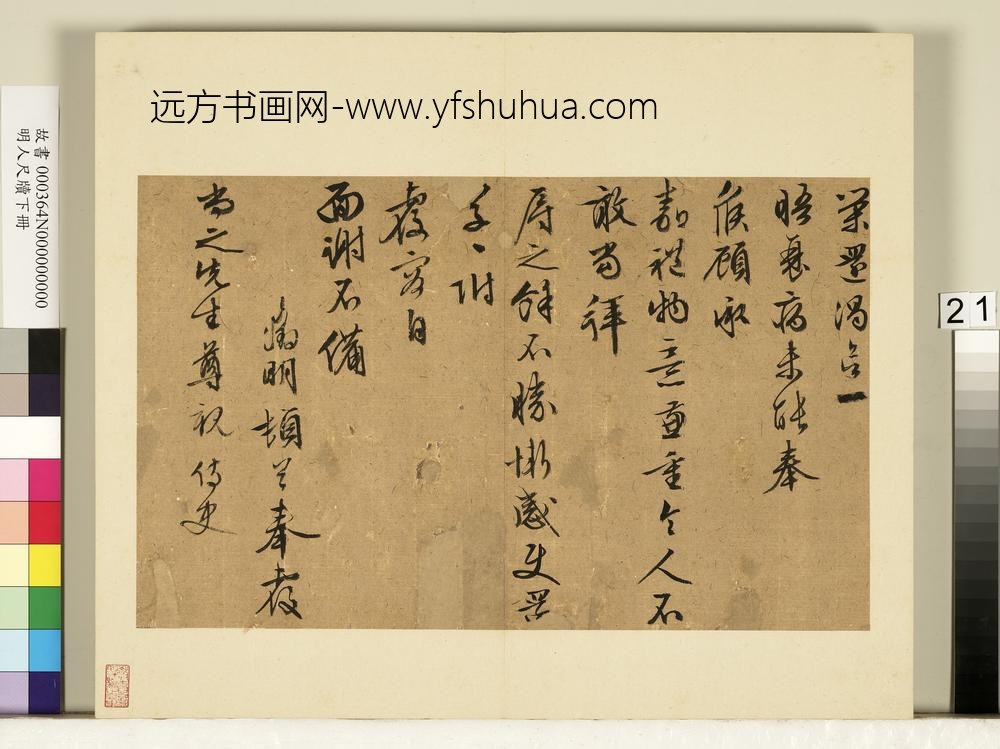 远方书画网-www.yfshuhua.com
故書 000364N000000000
明人尺牘下冊
21
榮還渴欲一
晤衰病未能奉
候顧承
嘉禮物意兼重令人不
敢當拜
辱之餘不勝慚感使還
草草附
覆容日
面謝不備
徵明頓首奉覆
尚之先生尊親侍史